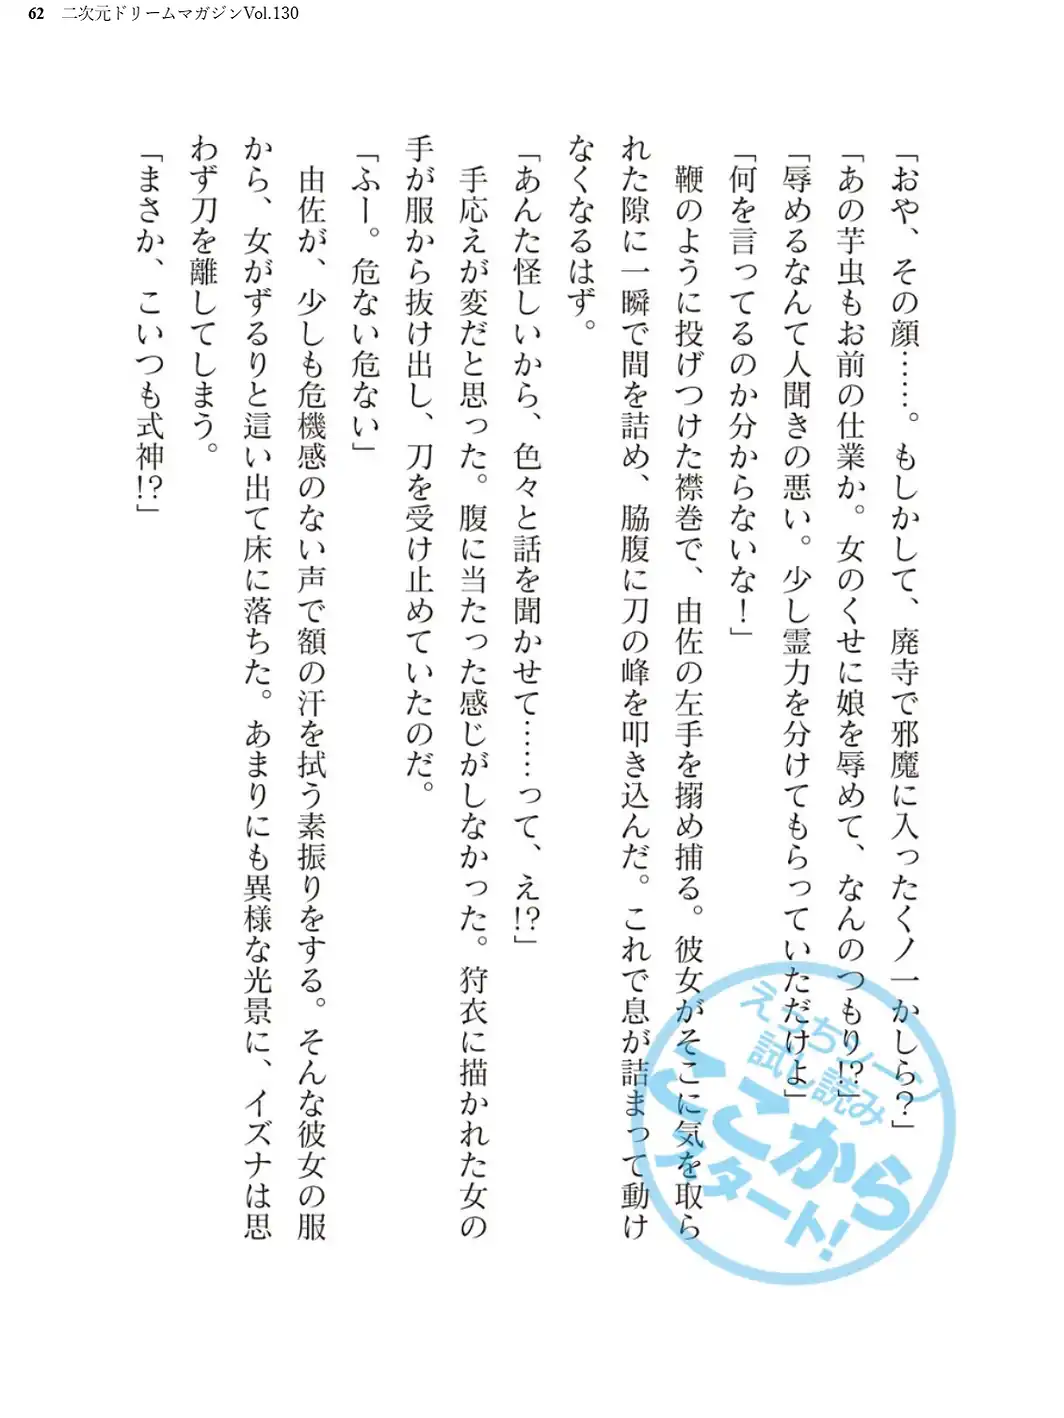 62 二次元ドリームマガジンVol.130
「おや、その顔……。もしかして、廃寺で邪魔に入ったくノ一かしら？」
「あの芋虫もお前の仕業か。女のくせに娘を辱めて、なんのつもり!?」
「辱めるなんて人聞きの悪い。少し霊力を分けてもらっていただけよ」
「何を言ってるのか分からないな！」
　鞭のように投げつけた襟巻で、由佐の左手を搦め捕る。彼女がそこに気を取ら
れた隙に一瞬で間を詰め、脇腹に刀の峰を叩き込んだ。これで息が詰まって動け
なくなるはず。
「あんた怪しいから、色々と話を聞かせて……って、え!?」
　手応えが変だと思った。腹に当たった感じがしなかった。狩衣に描かれた女の
手が服から抜け出し、刀を受け止めていたのだ。
「ふー。危ない危ない」
　由佐が、少しも危機感のない声で額の汗を拭う素振りをする。そんな彼女の服
から、女がずるりと這い出て床に落ちた。あまりにも異様な光景に、イズナは思
わず刀を離してしまう。
「まさか、こいつも式神!?」
えっちシーン
試し読み
ここから
スタート！